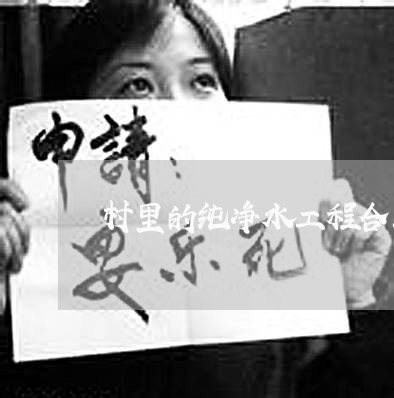 申請：
村里的纯净水工程合
要乐死